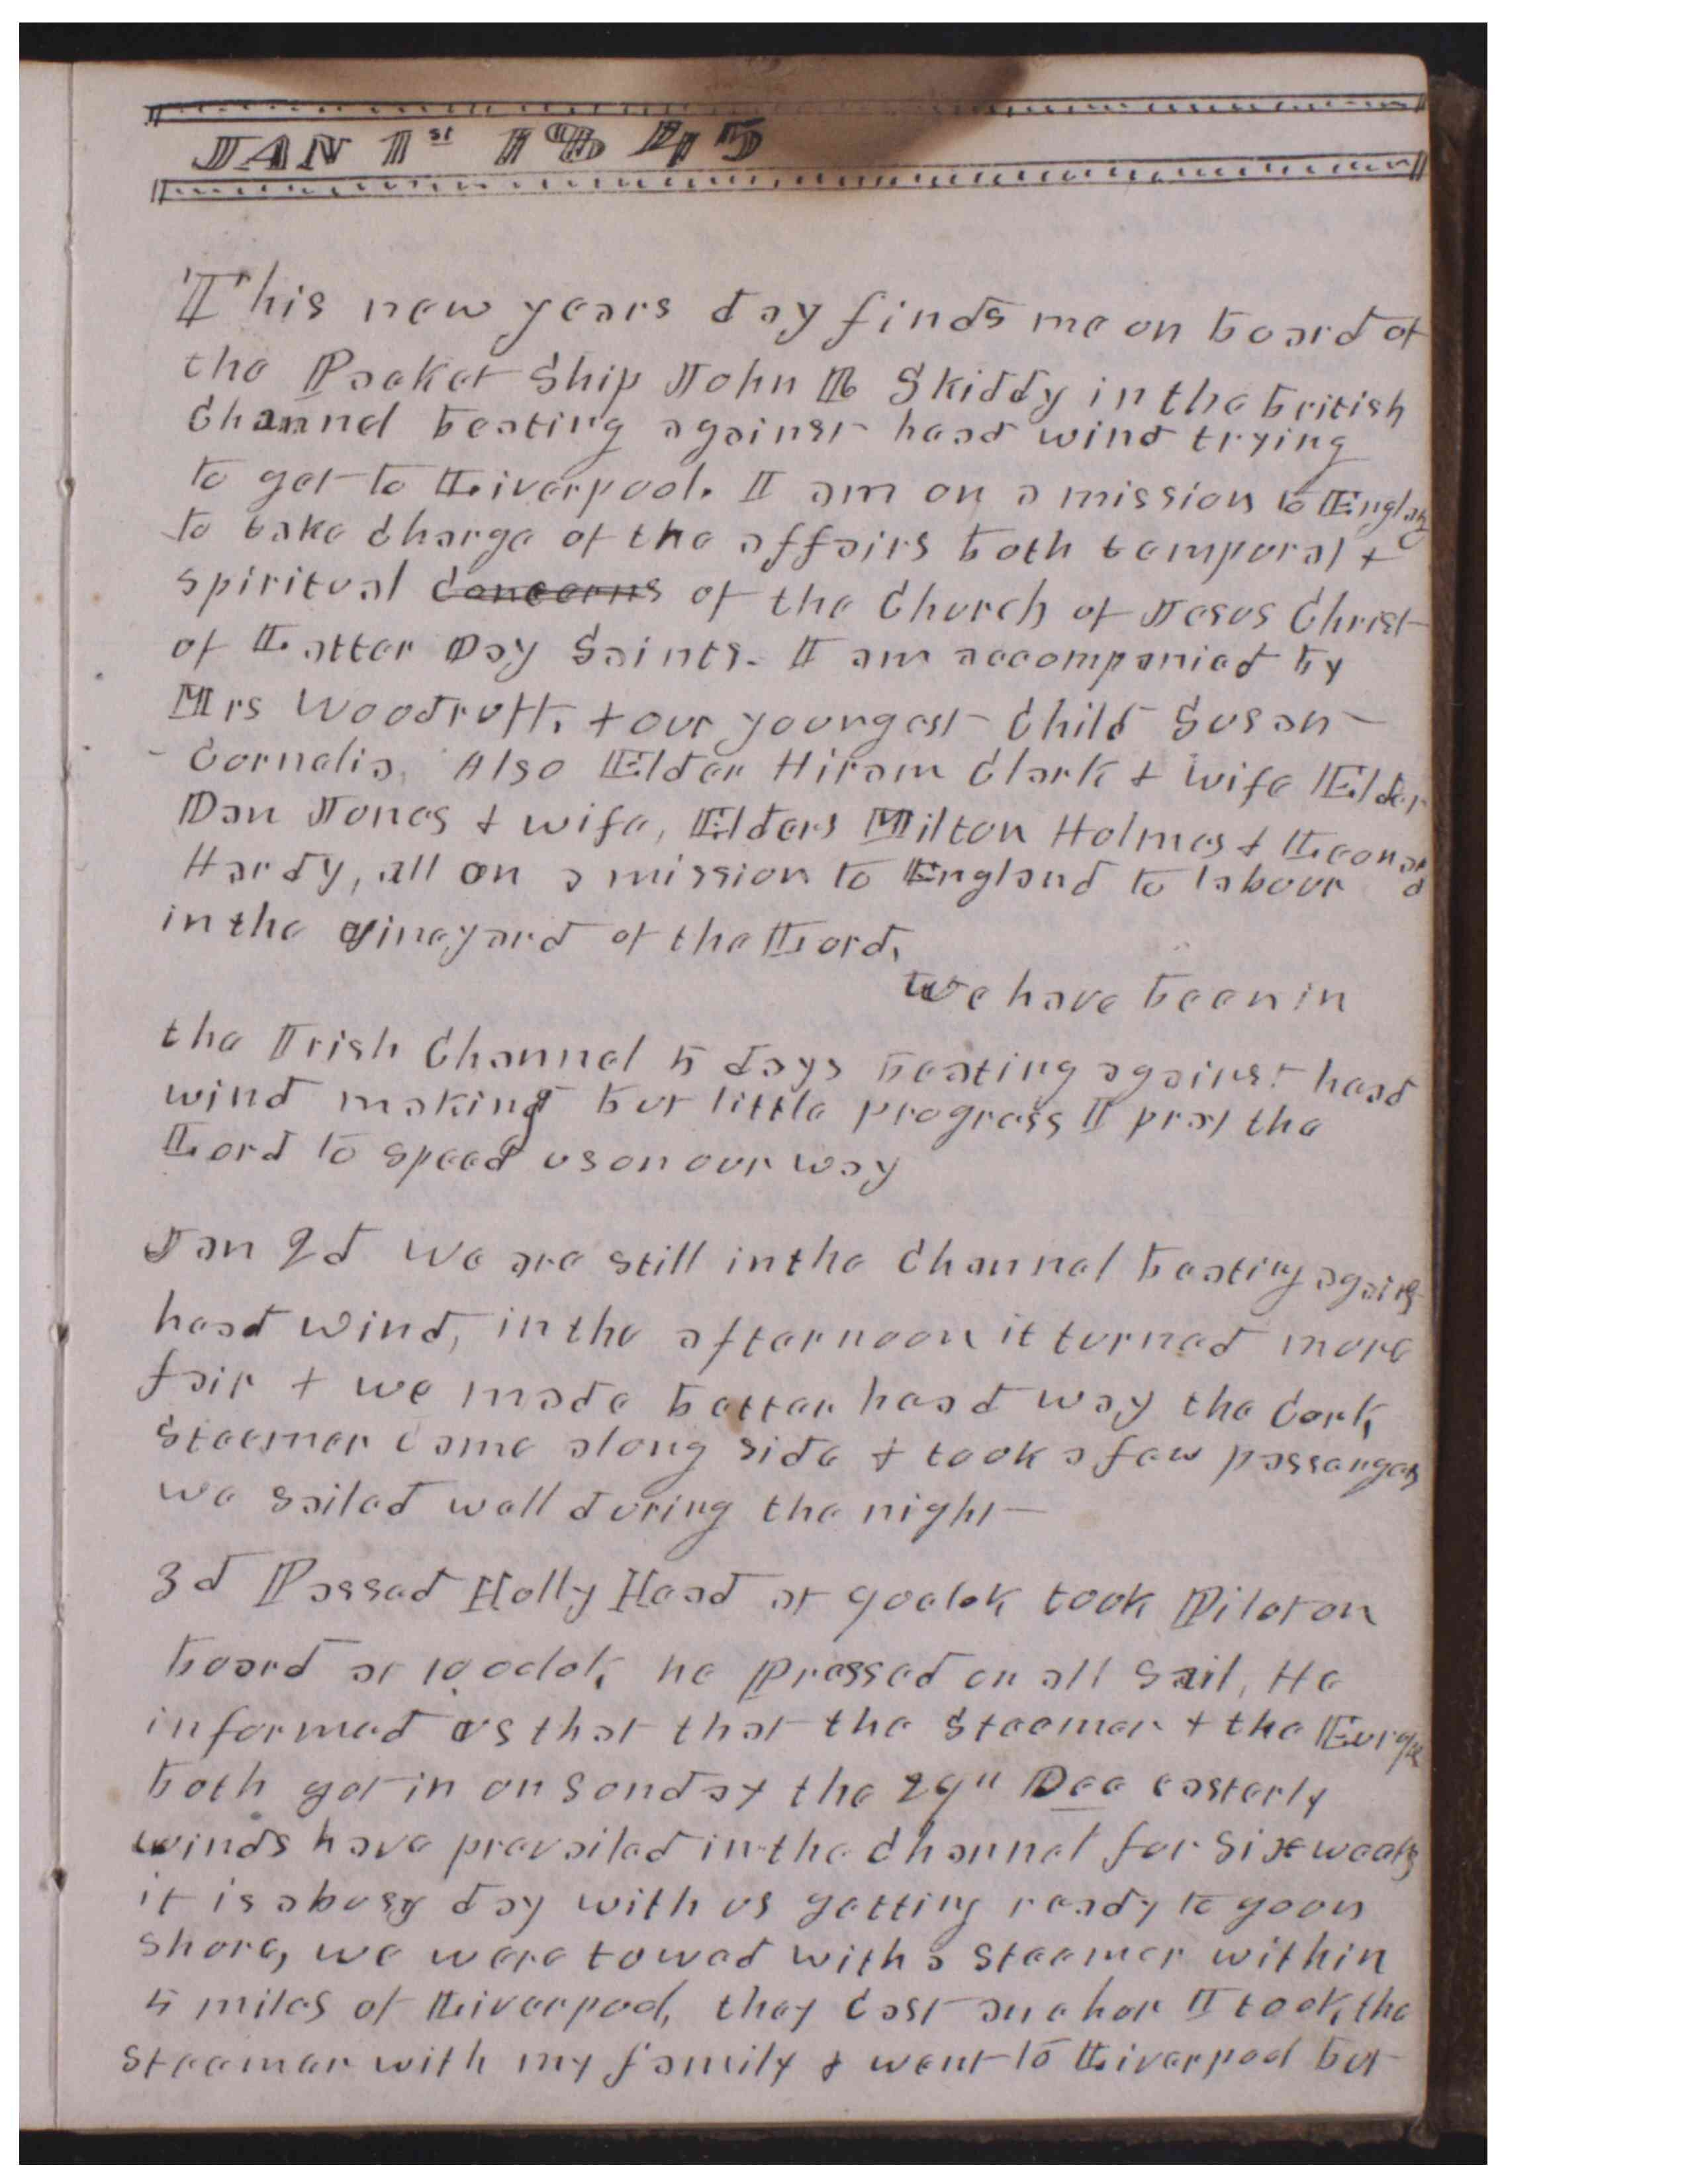 JAN 1st 1845
This new years day finds me on board of
the Packet Ship John R Skiddy in the british
Channel beating against head wind trying
to get to Liverpool. I am on a mission to England
to take charge of the affairs both temporal +
spiritual concerns of the Church of Jesus Christ
of Latter Day Saints. I am accompanied by
Mrs Woodruff, + our youngest Child Susan
Cornelia, Also Elder Hiram Clark + wife Elder
Dan Jones + wife, Elders Milton Holmes + Leonard
Hardy, all on a mission to England to labour
in the vineyard of the Lord.
We have been in
the Irish Channel 5 days beating against head
wind making but little progress I pray the
Lord to speed us on our way
Jan 2d We are still in the Channel beating against
head wind, in the afternoon it turned more
fair + we made better head way the Cork
steemer came along side + took a few passengers
we sailed well during the night
3d Passed Holly Head at 9 oclok took Pilot on
board at 10 oclok he pressed on all sail, He
informed us that that the Steemer + the Europe
both got in on Sunday the 29" Dec easterly
winds have prevailed in the channel for six weeks
it is a busy day with us getting ready to go on
shore, we were towed with a steemer within
5 miles of Liverpool, they cast anchor I took the
steemer with my family + went to Liverpool but